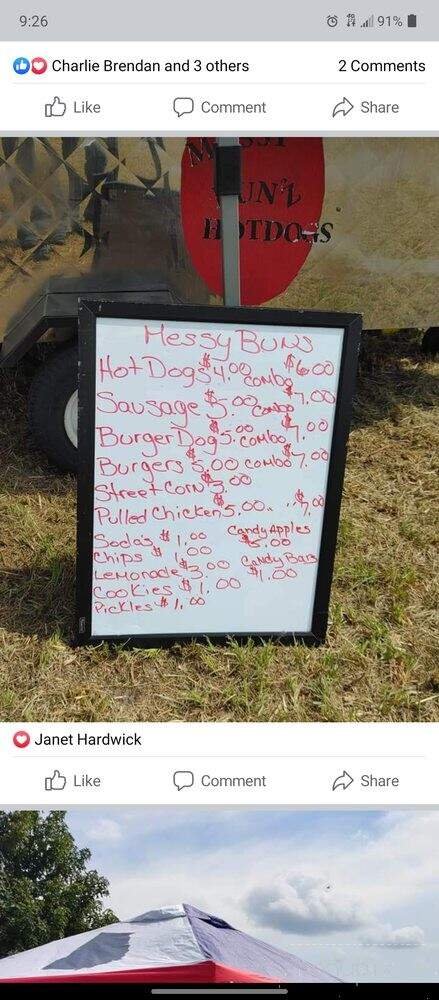 9:26
91%
Charlie Brendan and 3 others
2 Comments
Like Comment Share
HOTDOGS
Messy Buns
Hot Dogs $4.00 combo $6.00
Sausage $5.00 combo $7.00
Burger Dog $5.00 combo 7.00
Burgers 5.00 combo $7.00
Street Corn $3.00
Pulled Chicken $5.00.. .. $7.00
Soda's $1.00 Candy Apples $5.00
Chips $1.00
Lemonade $3.00 Candy Bars $1.00
Cookies $1.00
Pickles $1.00
Janet Hardwick
Like Comment Share